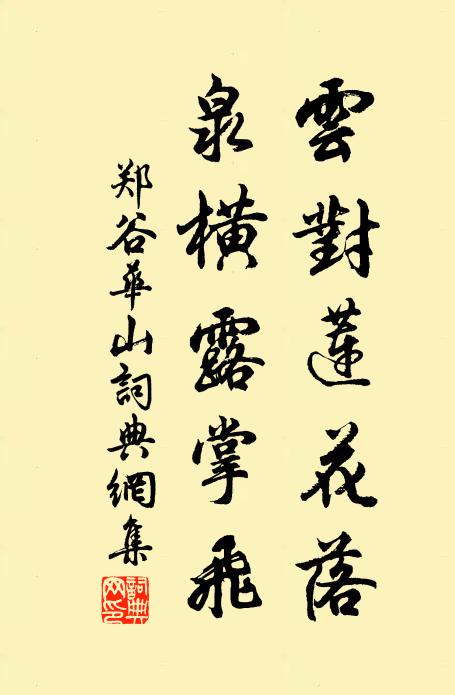 雲對蓮花落
泉橫露掌飛
郑谷華山詞典網集
詞典网印